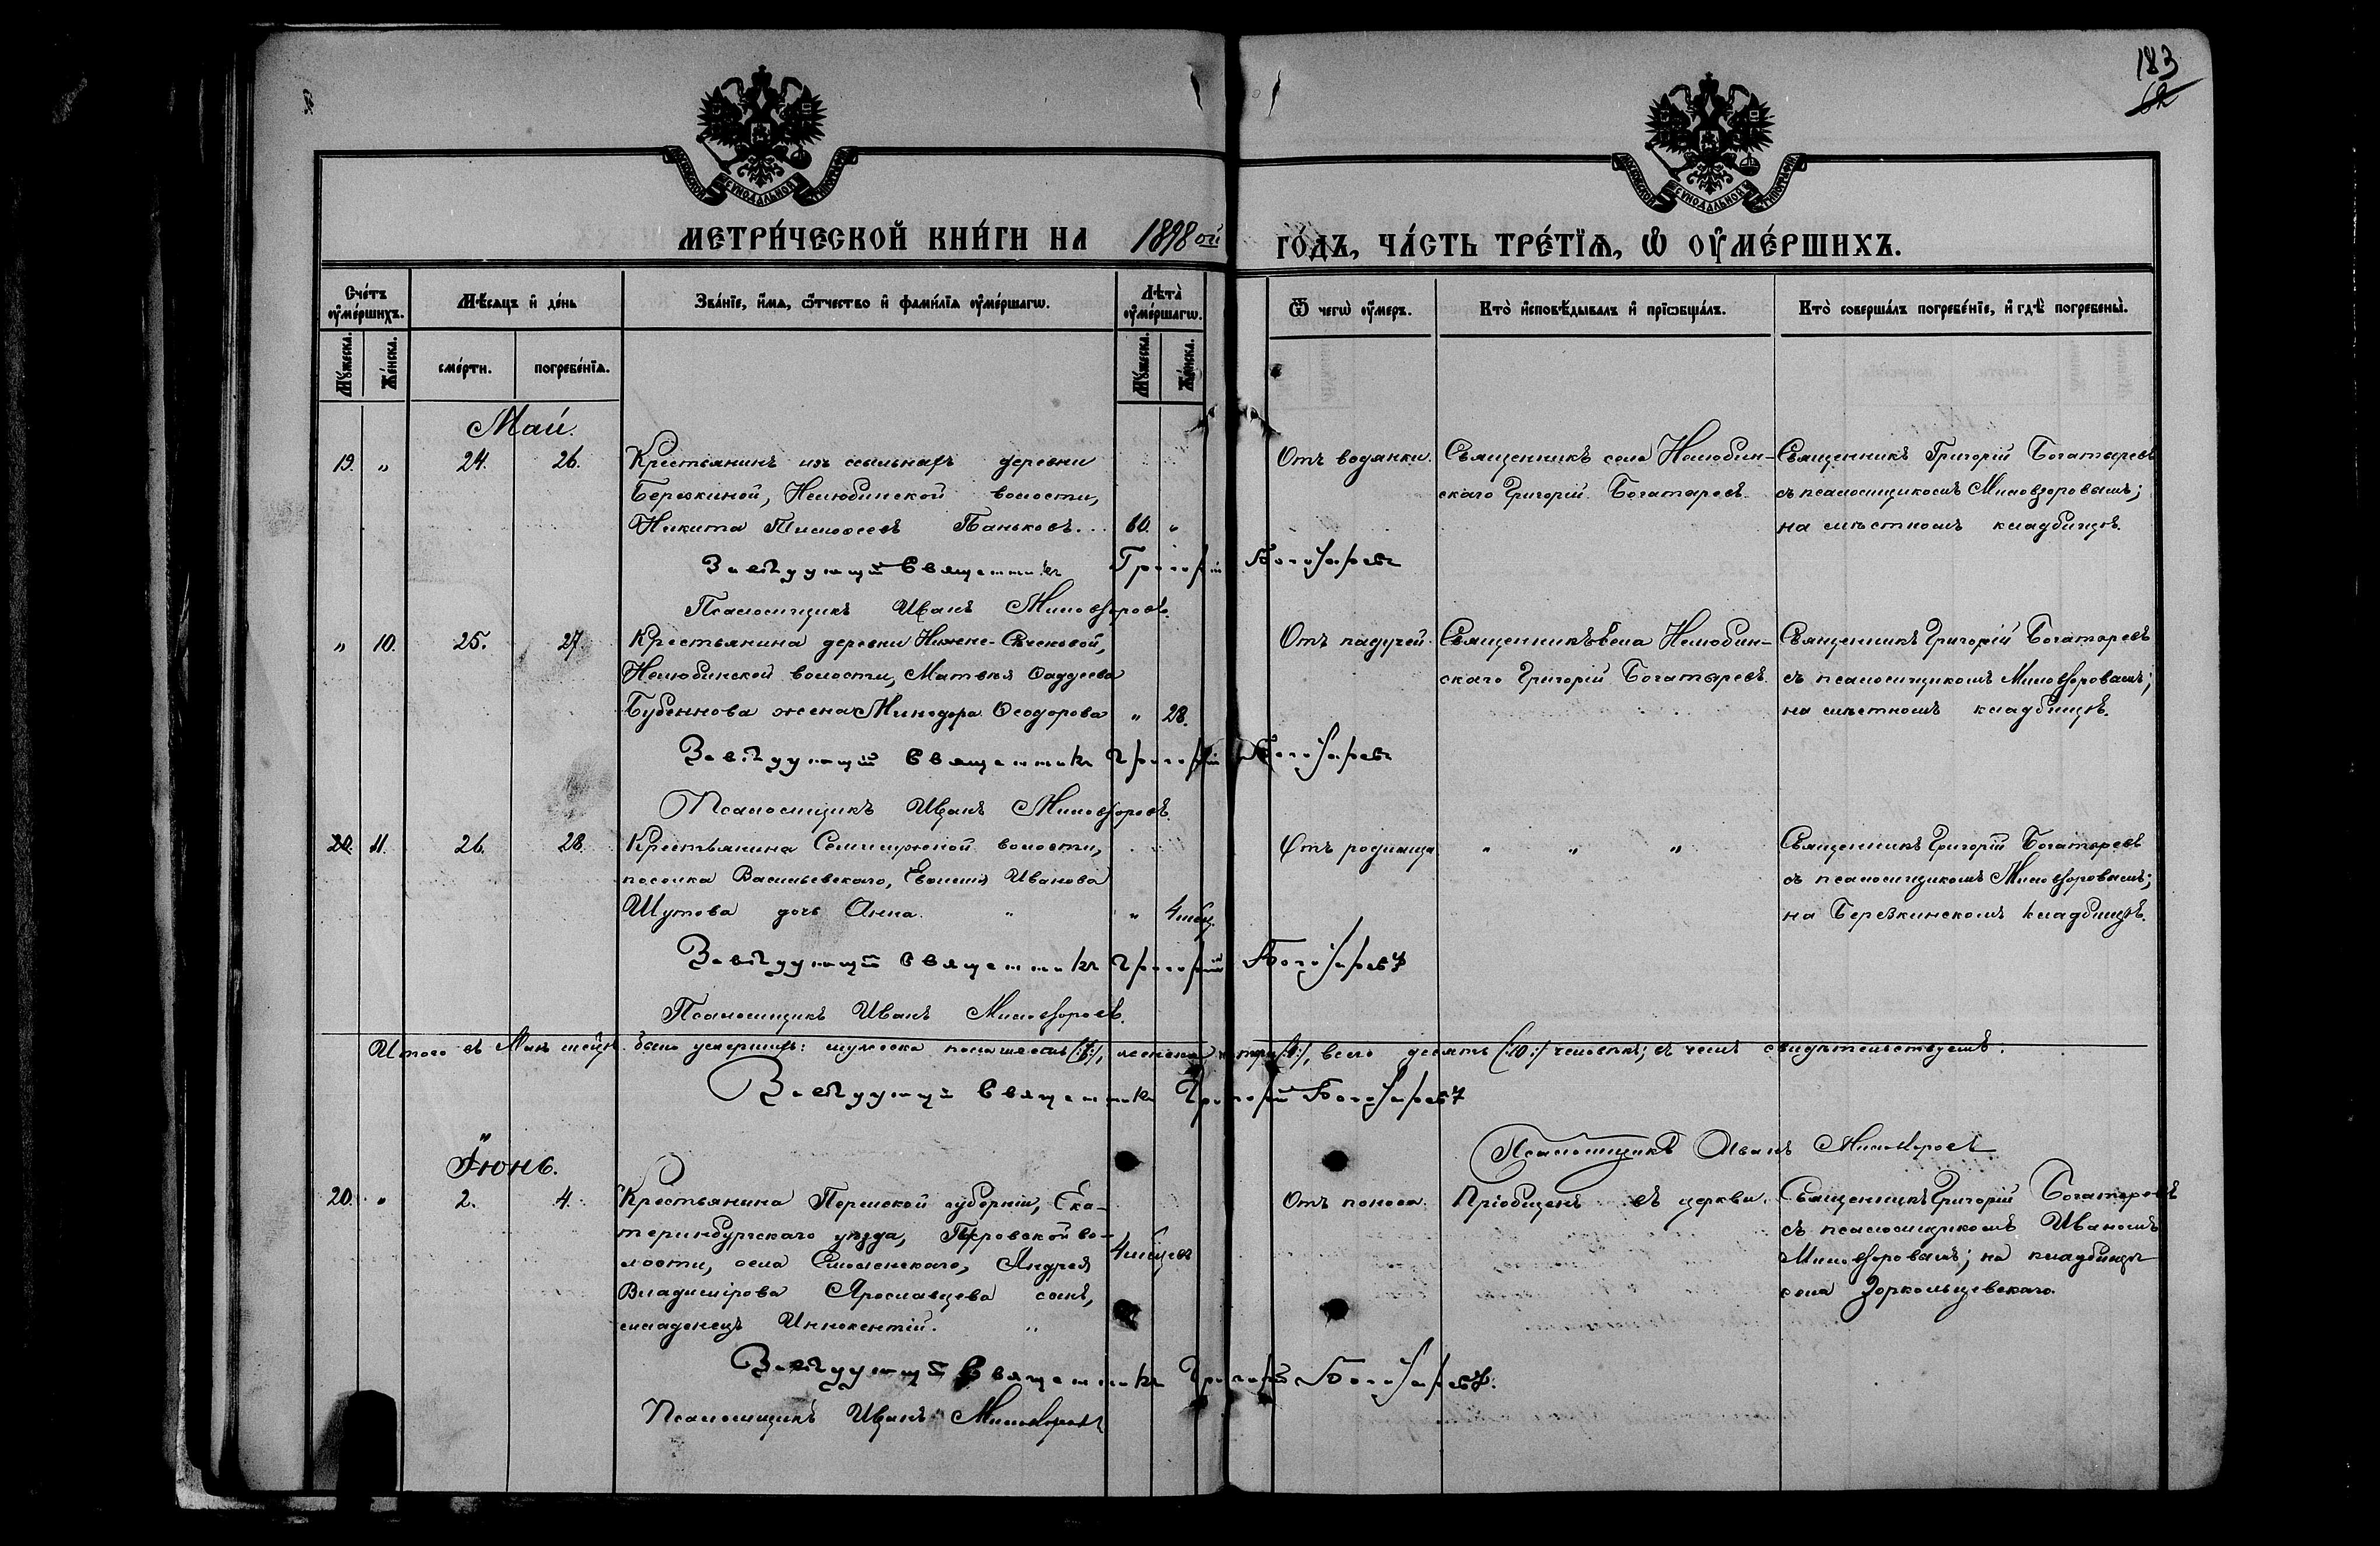 183
62
МОСКОВСКОЙ СѴНОДАЛЬНОЙ ТИПОГРАФІИ
МОСКОВСКОЙ СѴНОДАЛЬНОЙ ТИПОГРАФІИ
МЕТРИ́ЧЕСКОЙ КНИ́ГИ НА 1898ой ГО́ДЪ, ЧА́СТЬ ТРЕ́ТІѦ, Ѡ҆ ОУ҆МЕ́РШИХЪ.
Сче́тъ оу҆ме́ршихъ.
Мѣ́сѧцъ и҆ де́нь
Зва́нїе, и҆́мѧ, ѻ҆́тчество и҆ фами́лїѧ оу҆ме́ршагѡ.
Лѣта̀ оу҆ме́ршагѡ.
Ѿ чегѡ̀ оу҆́меръ.
Кто̀ и҆сповѣ́дывалъ и҆ прїѡбща́лъ.
Кто̀ соверша́лъ погребе́нїе, и҆ гдѣ̀ погребены̀.
Мꙋ́жеска.
Же́нска.
сме́рти.
погребе́нїѧ.
Мꙋ́жеска.
Же́нска.
Май.
19. " 24. 26.
Крестьянинъ изъ ссыльныхъ деревни
Березкиной, Нелюбинской волости,
Никита Тимоѳеевъ Паньковъ. 60. "
Отъ водянки.
Священникъ села Нелюбин-
скаго Григорій Богатыревъ.
Священникъ Григорій Богатыревъ
съ псаломщикомъ Миловзоровымъ;
на мѣстномъ кладбищѣ.
Завѣдующій Священникъ Григорій Богатыревъ
Псаломщикъ Иванъ Миловзоровъ.
" 10. 25. 27.
Крестьянина деревни Нижне-Сѣченовой,
Нелюбинской волости, Матвѣя Ѳаддеева
Бубеннова жена Минодора Ѳеодорова " 28.
Отъ падучей.
Священникъ Села Нелюбин-
скаго Григорій Богатыревъ.
Священникъ Григорій Богатыревъ
съ псаломщикомъ Миловзоровымъ;
на мѣстномъ кладбищѣ.
Завѣдующій Священникъ Григорій Богатыревъ
Псаломщикъ Иванъ Миловзоровъ.
20. 11. 26. 28.
Крестьянина Семилужной волости,
поселка Васильевскаго, Евѳимія Иванова
Шутова дочь Анна. " " 4 мѣс.
Отъ родимца.
" " "
Священникъ Григорій Богатыревъ
съ псаломщикомъ Миловзоровымъ;
на Березкинскомъ кладбищѣ.
Завѣдующій Священникъ Григорій Богатыревъ
Псаломщикъ Иванъ Миловзоровъ.
Итого въ Маѣ мѣсяцѣ было умершихъ: мужеска пола шесть (:6:), женска четыре (:4:), всего десять (:10:) человѣкъ; въ чемъ свидѣтельствуемъ.
Завѣдующій Священникъ Григорій Богатыревъ
Псаломщикъ Иванъ Миловзоровъ
Іюнь.
20. " 2. 4.
Крестьянина Пермской губерніи, Ека-
теринбургскаго уѣзда, во-
лости, села Смоленскаго, Андрея
Владимірова Ярославцева сынъ,
младенецъ Иннокентій. "
4 мѣсяца
Отъ поноса.
Пріобщенъ въ церкви.
Священникъ Григорій Богатыревъ
съ псаломщикомъ Иваномъ
Миловзоровымъ; на кладбищѣ
села Зоркольцевскаго.
Завѣдующій Священникъ Григорій Богатыревъ.
Псаломщикъ Иванъ Миловзоровъ